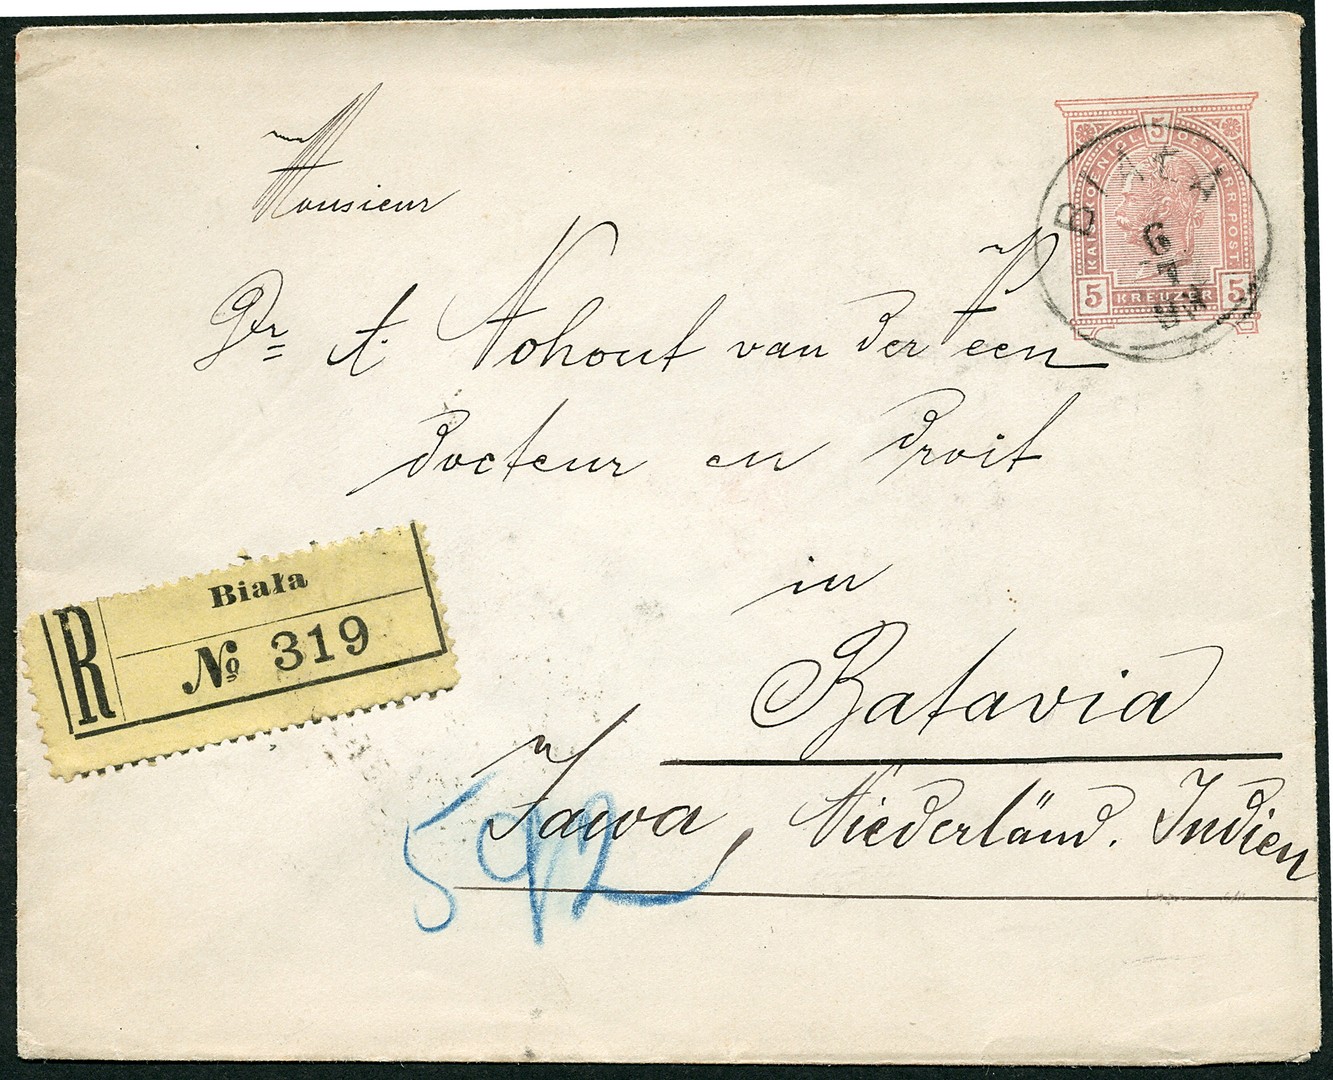 5
KAIS. KOENIGL. OESTERR. POST.
5 KREUZER 5
BIALA
6
Monsieur
Dr A. Nohout van der Veen
docteur en droit
in
Batavia
Jawa, Niederländ. Indien
R
Biała
№ 319
592